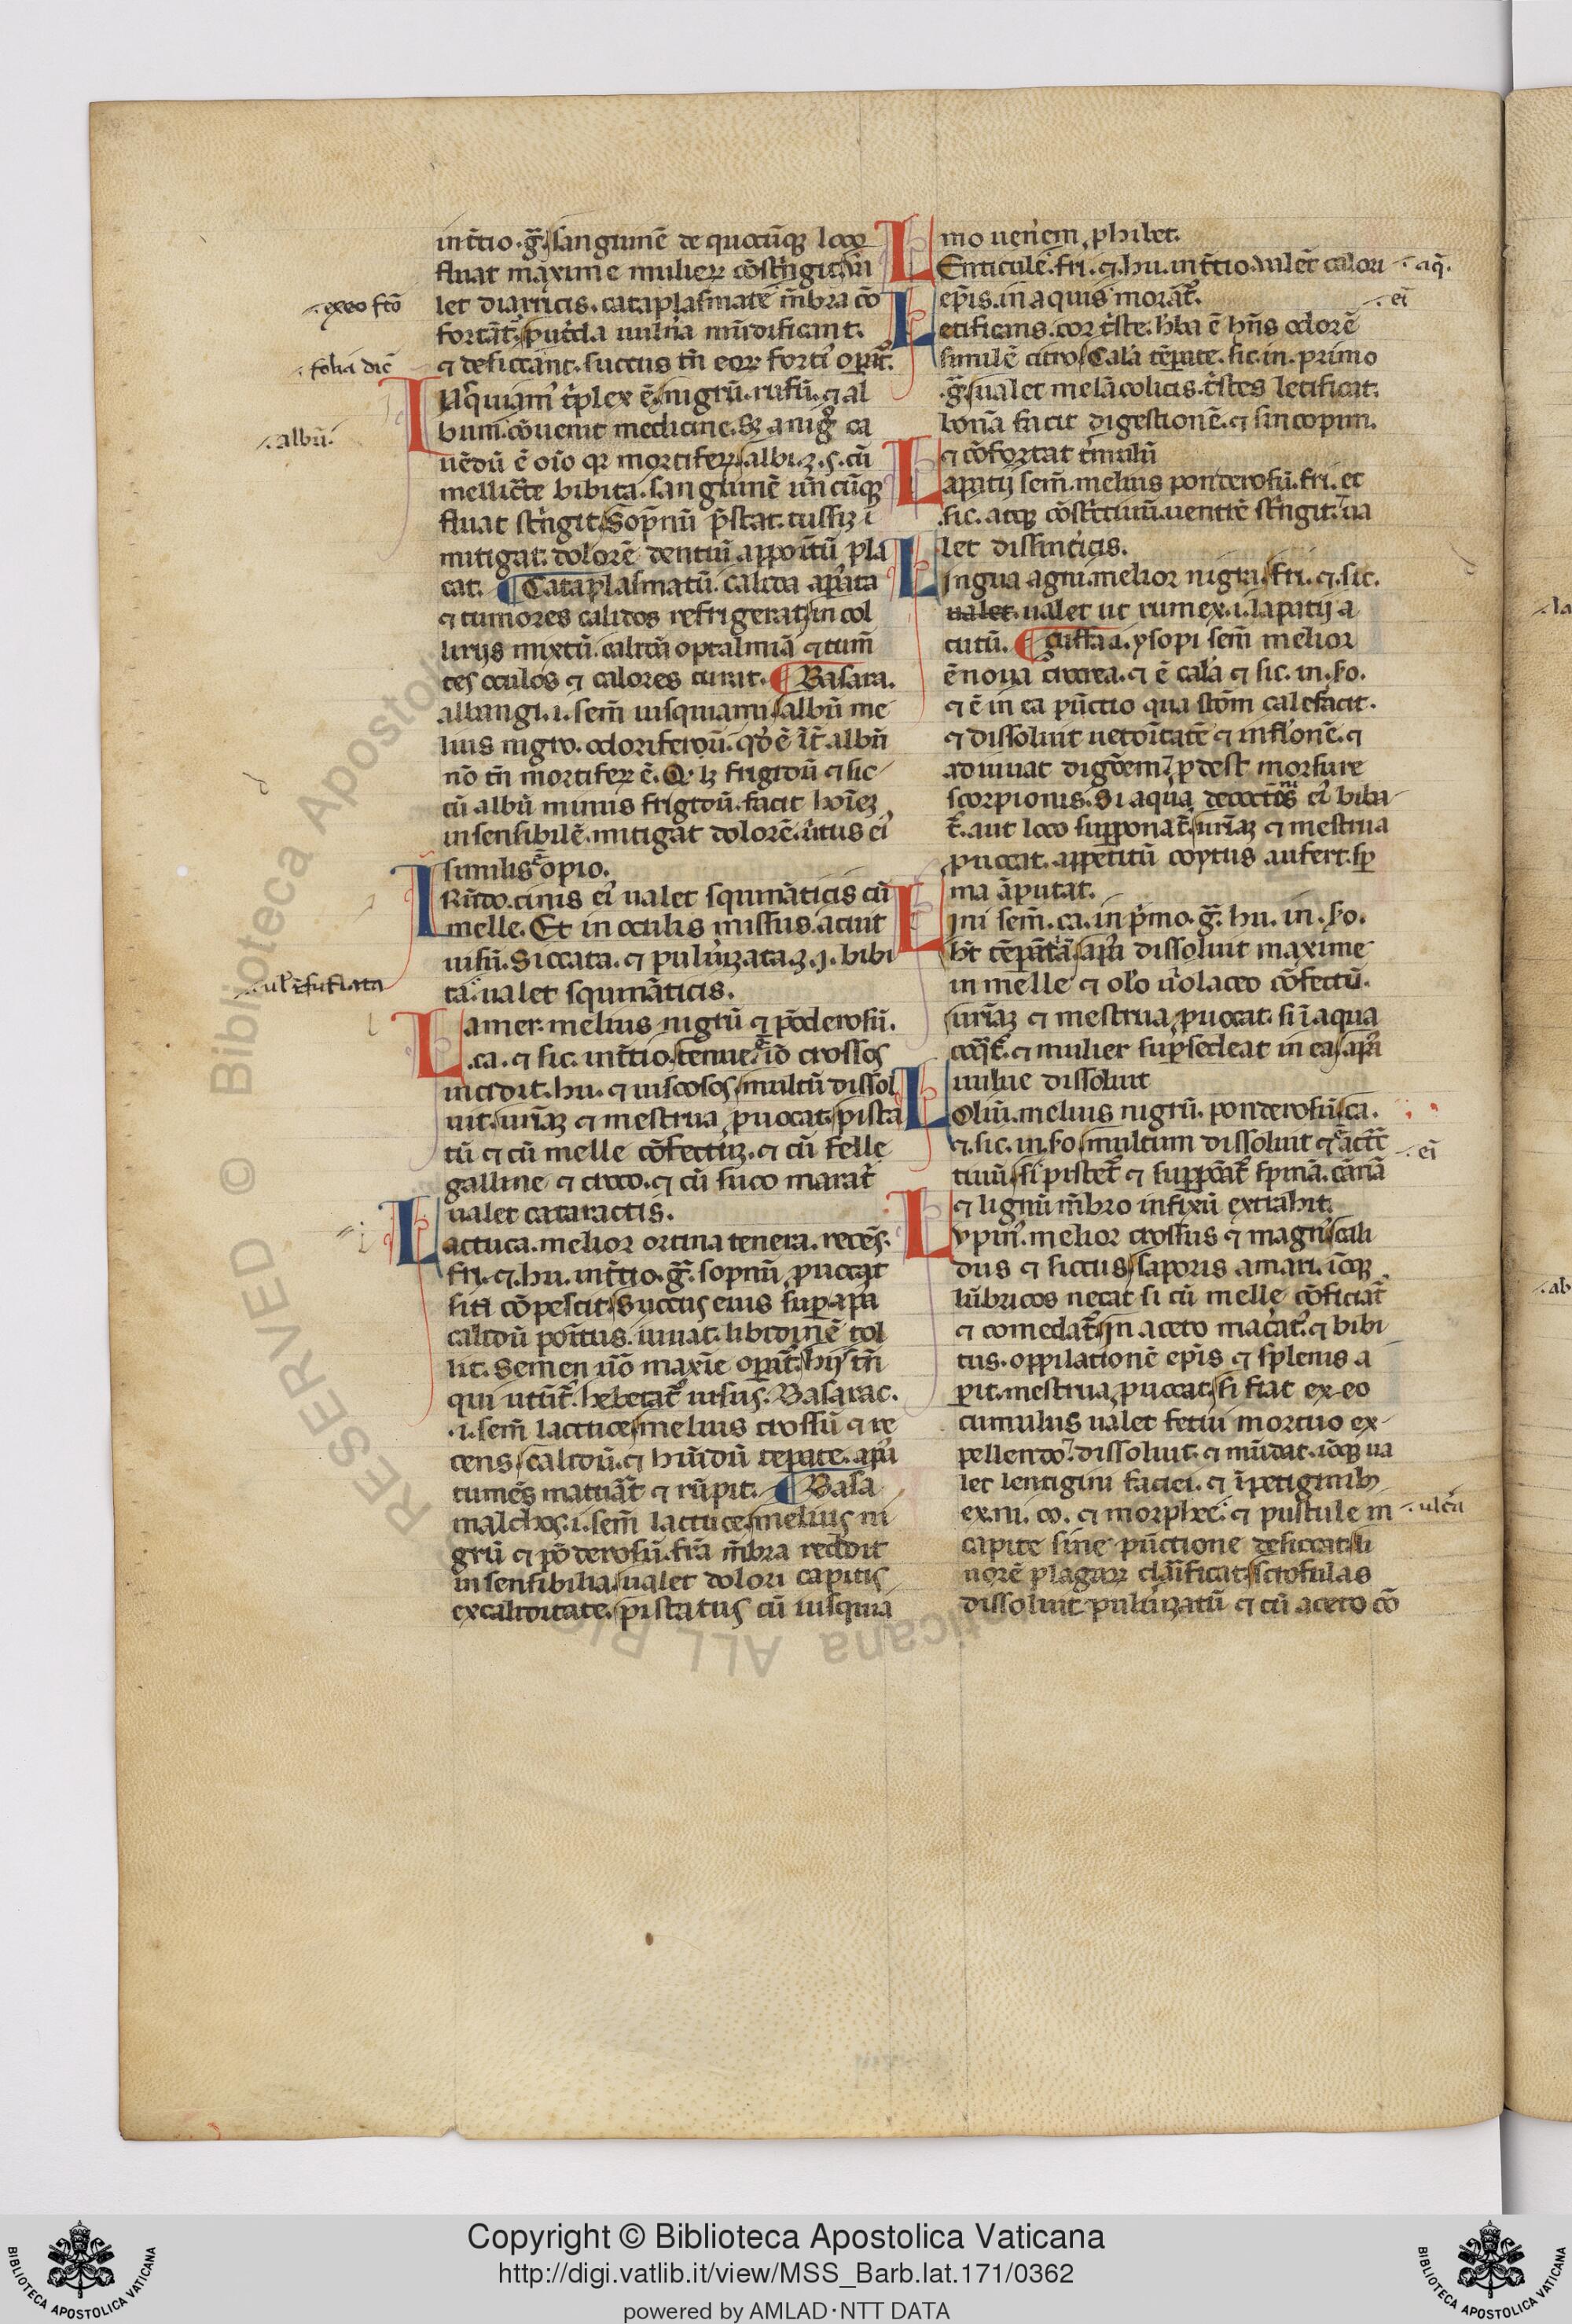 intͥtio. gͣ. sanguinē de quocūqꝫ loco
fluat maxime mulieꝝ cōstͥngit. ua
let diarricis. cataplasmate m̄bra cō
fortāt. putͥda uulñа mūdificant.
⁊ desiccant. succus tñ eoꝝ fortiꝰ opat͛.
Iusquiamꝰ tͥplex ē. nigrū. rufū. ⁊ al
bum. cōuenit medicine. sꝫ a nigͦ ca
uēdū ē oīo qꝛ mortifeꝝ. albi. ʒ. s. cū
mellicͣte bibita. sanguinē ūn cūqꝫ
fluat stͥngit. Sopnū p̄stat. tussiꝫ ī
mitigat. dolorē dentiū appoītū pla
cat. ¶ Cataplasmatū. calida apͣata
⁊ tumores calidos refrigerat. in col
liriis mixtū. calidā optalmiā ⁊ tum̄
tes oculos ⁊ calores curat. ¶ Basara.
albangi. i. sem̄ iusquiami. albū me
lius nigro. odoriferoū. qd ē īt͛ albū
nō tñ mortifeꝝ ē. Qꝫ lꝫ frigidū ⁊ sic
cū albū minus frigidū. facit hoīeꝫ
insensibilē. mitigat dolorē. uͥtus eiꝰ
similis ē opio.
Irūdo. cinis eiꝰ ualet squināticis cū
melle. Et in oculis missus. acuit
uisū. Siccata. ⁊ puluͥizata. ʒ. j. bibi
ta. ualet squināticis.
Lamer. melius nigrū ⁊ pōderosū.
.ca. ⁊ sic. intͥtio. tenue ē. iō crossos
incidit. hu. ⁊ uiscosos. multū dissol
uit. urīaꝫ ⁊ mestrua ꝓuocat. pista
tū ⁊ cū melle cōfectuꝫ. ⁊ cū felle
galline ⁊ croco. ⁊ cū suco maratͥ
ualet cataractis.
Lactuca. melior ortina tenera. recēs.
fri. ⁊. hu. intͥtio. gͣ. sopnū ꝓuocat
sitī cōpescit. Succus eius suꝑ apͣa
calidū poītus. iuuat. libidinē tol
lit. Semen uͦo maxīe opat͛. hii tñ
qui utūt͛. hebetat͛ uisus. Basarac.
.i. sem̄ lactuce. melius crossū ⁊ re
cens. calidū. ⁊ hūidū teꝑate. apͣa
tumēs maturat ⁊ rūpit. ¶ Basa
malchos. i. sem̄ lactuce. melius ni
grū ⁊ pōderosū. frā m̄bra reddit
insensibilia. ualet dolori capitis
ex caliditate. pistatus cū iusquia
mo uenͥem ꝓhibet.
Lenticule. fri. ⁊. hu. intͥtio. ualet calori
ep̄is. in aquis morāt͛.
Letificans. cor tͥste. h̓ba ē hn̄s odorē
similē citro. Calͣa tēꝑate. sic. in. primo
.gͣ. ualet melācolicis. tͥstes letificat.
bonā facit digestionē. ⁊ sincopim.
⁊ cōfortat tͥmulū
Lapatii sem̄. melius ponderosū. fri. et
.sic. atqꝫ cōstͥctiuū. uentrē stͥngit. ua
let dissintͥicis.
Lingua agni. melior nigra. fri. ⁊. sic.
ualet. ualet ut rumex. i. lapatii a
cutū. ¶ guffaa. ysopi sem̄ melior
ē noua crocea. ⁊ ē calͣa ⁊ sic. in. so.
⁊ ē in ea pūctio qua stom̄ calefacit.
⁊ dissoluit uetoītatē ⁊ inflonē. ⁊
adiuuat digōem. ꝓdest morsure
scorpionis. Si aqua decoctōis eiꝰ biba
t͛. aut loco suppoñat͛. urīaꝫ ⁊ mestrua
ꝓuocat. appetitū coytus aufert. sꝑ
ma āputat.
Lini sem̄. ca. in pͥmo. gͣ. hu. in. so.
h̓t tēꝑātiā. apͣa dissoluit maxime
in melle ⁊ oleo uͥolaceo cōfectū.
urīaꝫ ⁊ mestrua ꝓuocat. si ī aqua
coqͣt͛. ⁊ mulier suꝑsedeat in ea. apͣa
uulue dissoluit
Loliū. melius nigrū. ponderosū. ca.
⁊. sic. in. so. multum dissoluit ⁊ ē actͣc
tiuū. si pistet͛ ⁊ suppōat͛ spinā. cānā
⁊ lignū m̄bro infixū extrahit.
Lupinꝰ. melior crossus ⁊ magnꝰ. cali
dus ⁊ siccus. saporis amari. iōqꝫ
lūbricos necat si cū melle cōficiat͛
⁊ comedat͛. in aceto macͣatꝰ. ⁊ bibi
tus. oppilationē epis ⁊ splenis a
perit. mestrua ꝓuocat. si fiat ex eo
cumulus ualet fetui mortuo ex
pellendo. dissoluit. ⁊ mūdat. iōqꝫ ua
let lentigini faciei. ⁊ īpetiginibꝫ
ex. ni. co. ⁊ morphee. ⁊ pustule in
capite sine pūctione desiccat. li
uorē plagaꝝ clāificat. scrofulas
dissoluit puluͥizatū ⁊ cū aceto cō
exeo scō
folia dic̄
albū.
ul̓ ē sufflata
aq̄.
eī
eī
ulcͣa
la
ab
RESERVED © Biblioteca Apostolica Vaticana ALL RIG
Copyright © Biblioteca Apostolica Vaticana
http://digi.vatlib.it/view/MSS_Barb.lat.171/0362
powered by AMLAD·NTT DATA
BIBLIOTECA APOSTOLICA VATICANA
BIBLIOTECA APOSTOLICA VATICANA